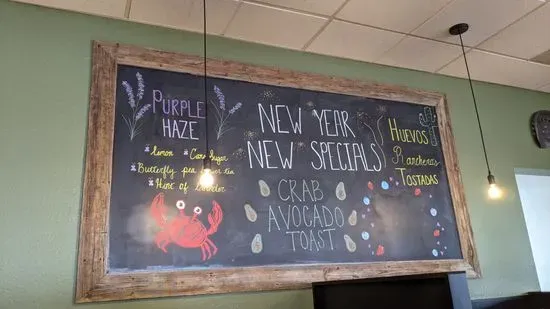 PURPLE
HAZE
lemon
Cane Sugar
Butterfly pea flower tea
Hint of
NEW YEAR
NEW SPECIALS
CRAB
AVOCADO
TOAST
HUEVOS
Rancheros
TOSTADAS